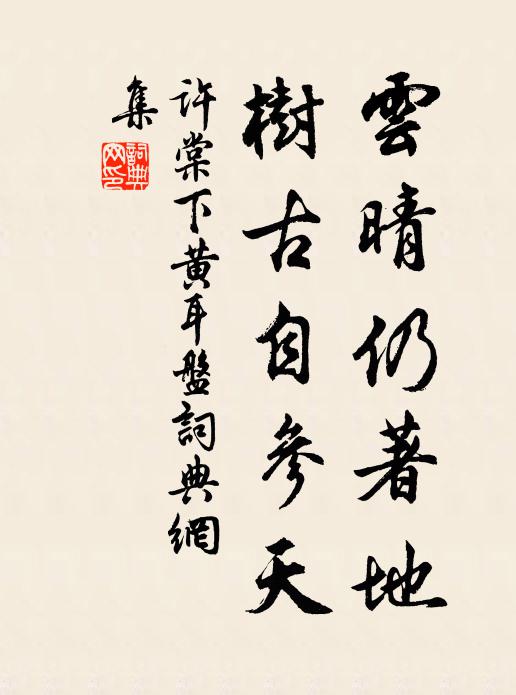 雲晴仍著地
樹古自參天
許棠下黃耳盤詞典網
集
詞典
网印